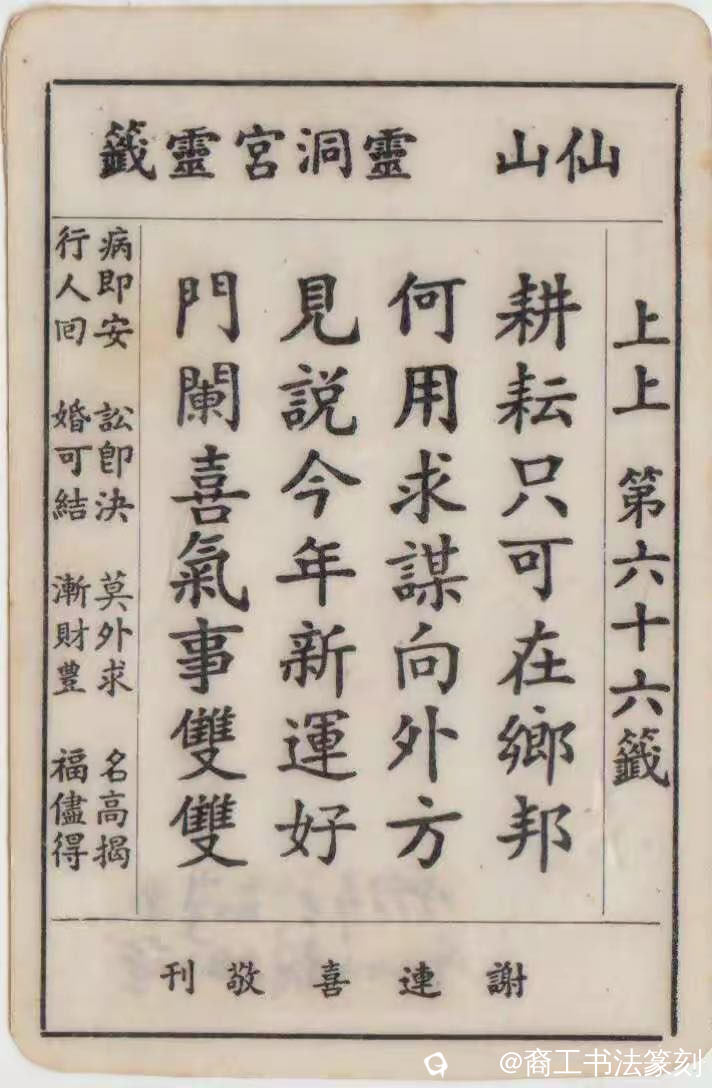 仙山　靈洞宮靈籤
上上　第六十六籤
耕耘只可在鄉邦
何用求謀向外方
見説今年新運好
門闌喜氣事雙雙
病即安　訟即決　莫外求　名高揭
行人回　婚可結　漸財豐　福儘得
謝連喜敬刊
@裔工书法篆刻